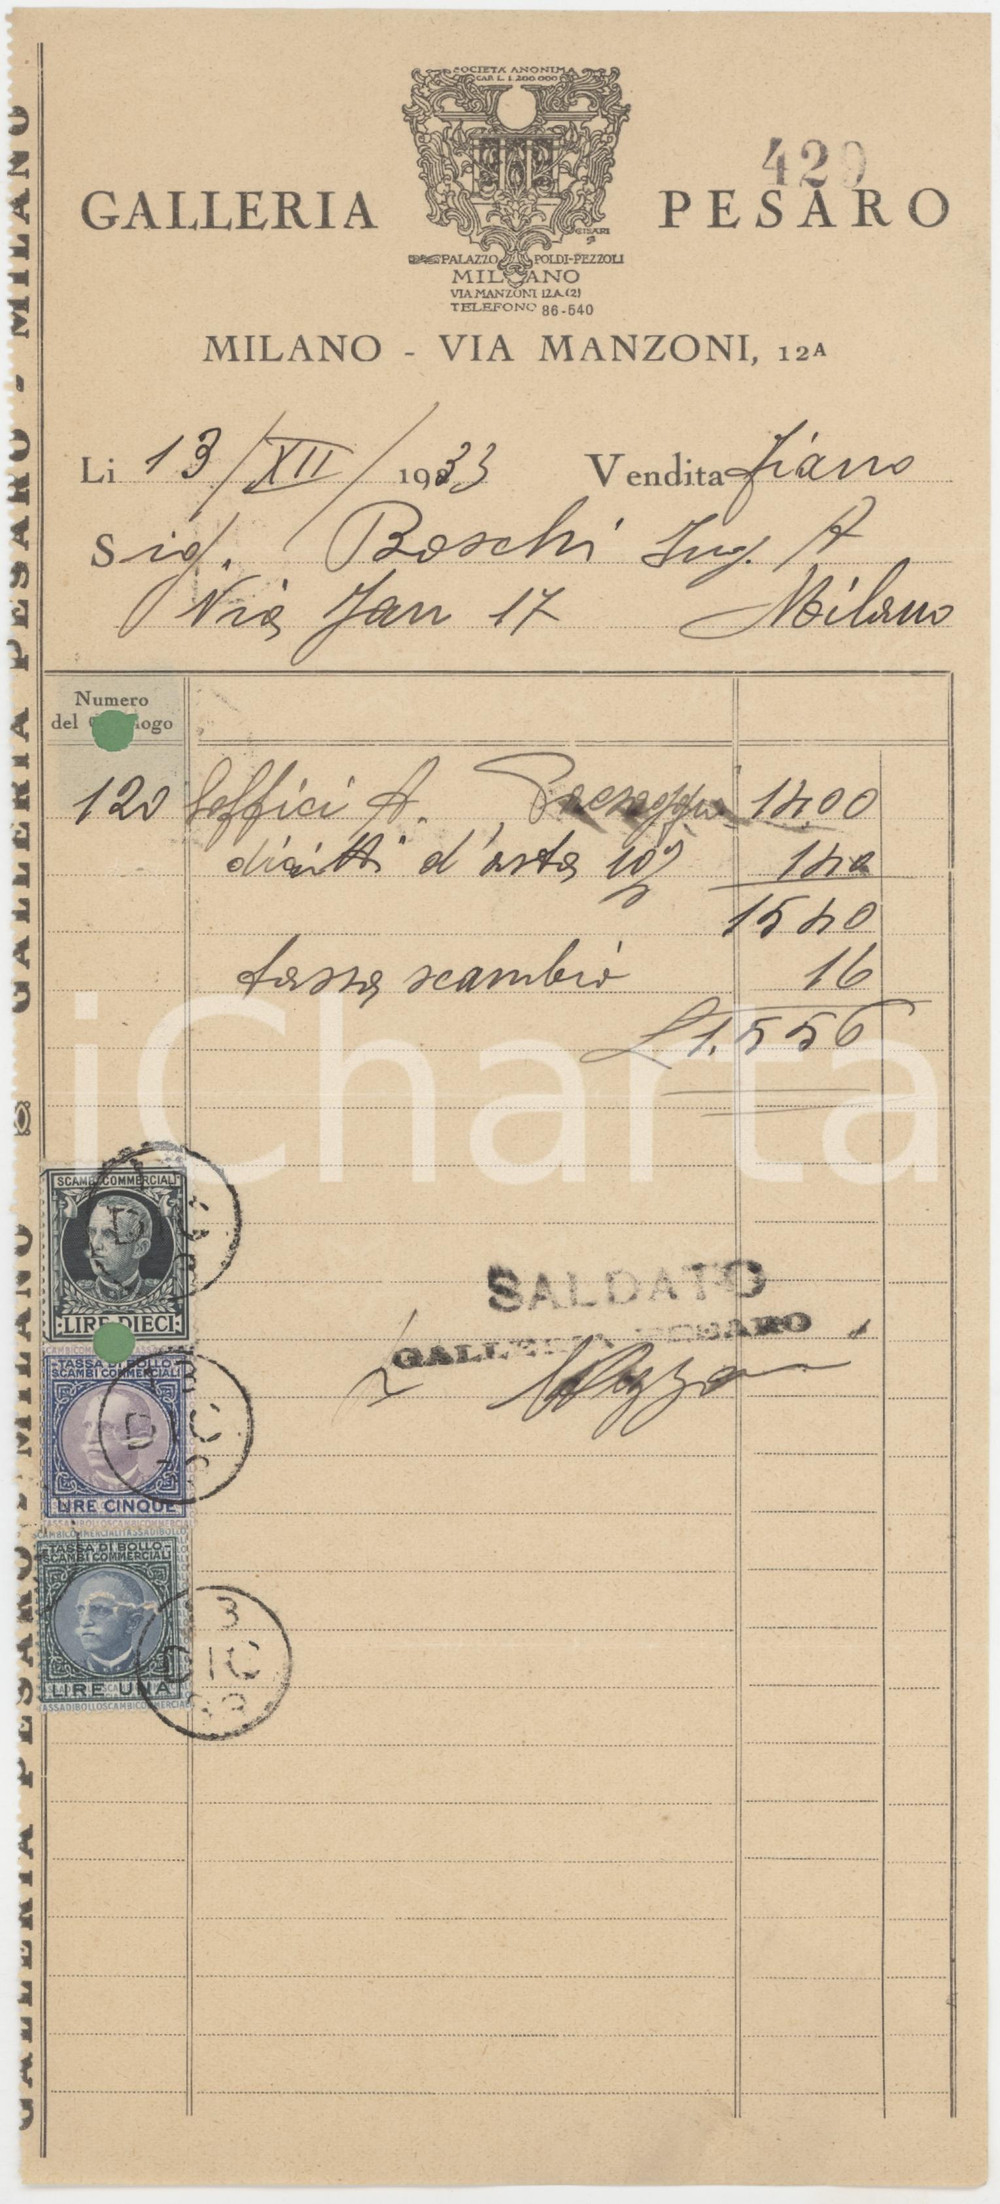 SOCIETÀ ANONIMA
CAP. L. 1.200.000
429
GALLERIA PESARO
CISARI
PALAZZO POLDI-PEZZOLI
MILANO
VIA MANZONI 12.A.(2)
TELEFONO 86-540
MILANO - VIA MANZONI, 12A
Li 13/XII/1933 Vendita Fiano
Sig. Boschi Ing. A
Via Jan 17 Milano
Numero
del Catalogo
120 Soffici A. Paesaggio 1400
diritti d'asta 10% 140
1540
tassa scambio 16
L 1.556
iCharta
SCAMBI COMMERCIALI
LIRE DIECI
SALDATO
GALLERIA PESARO
TASSA DI BOLLO
SCAMBI COMMERCIALI
LIRE CINQUE
TASSA DI BOLLO
SCAMBI COMMERCIALI
LIRE UNA
13
DIC
33
GALLERIA PESARO - MILANO
GALLERIA PESARO - MILANO